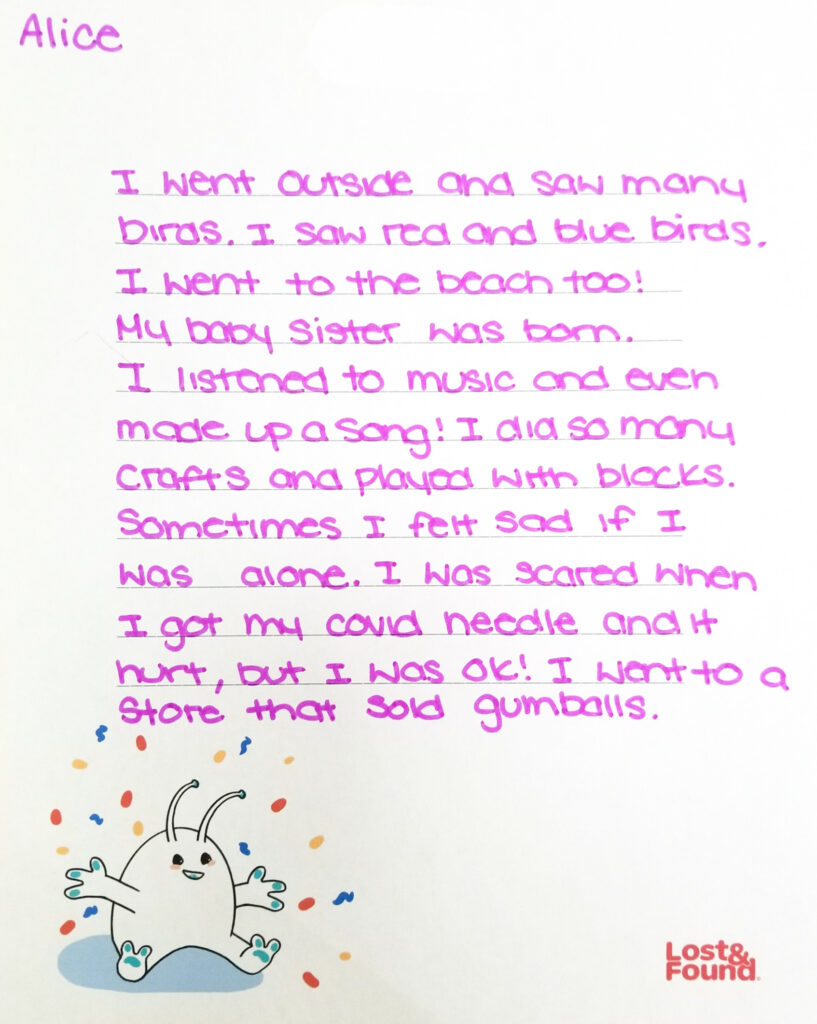 Alice
I went outside and saw many
birds. I saw red and blue birds.
I went to the beach too!
My baby sister was born.
I listened to music and even
made up a song! I did so many
crafts and played with blocks.
Sometimes I felt sad if I
was alone. I was scared when
I got my covid needle and it
hurt, but I was ok! I went to a
store that sold gumballs.
Lost&
Found